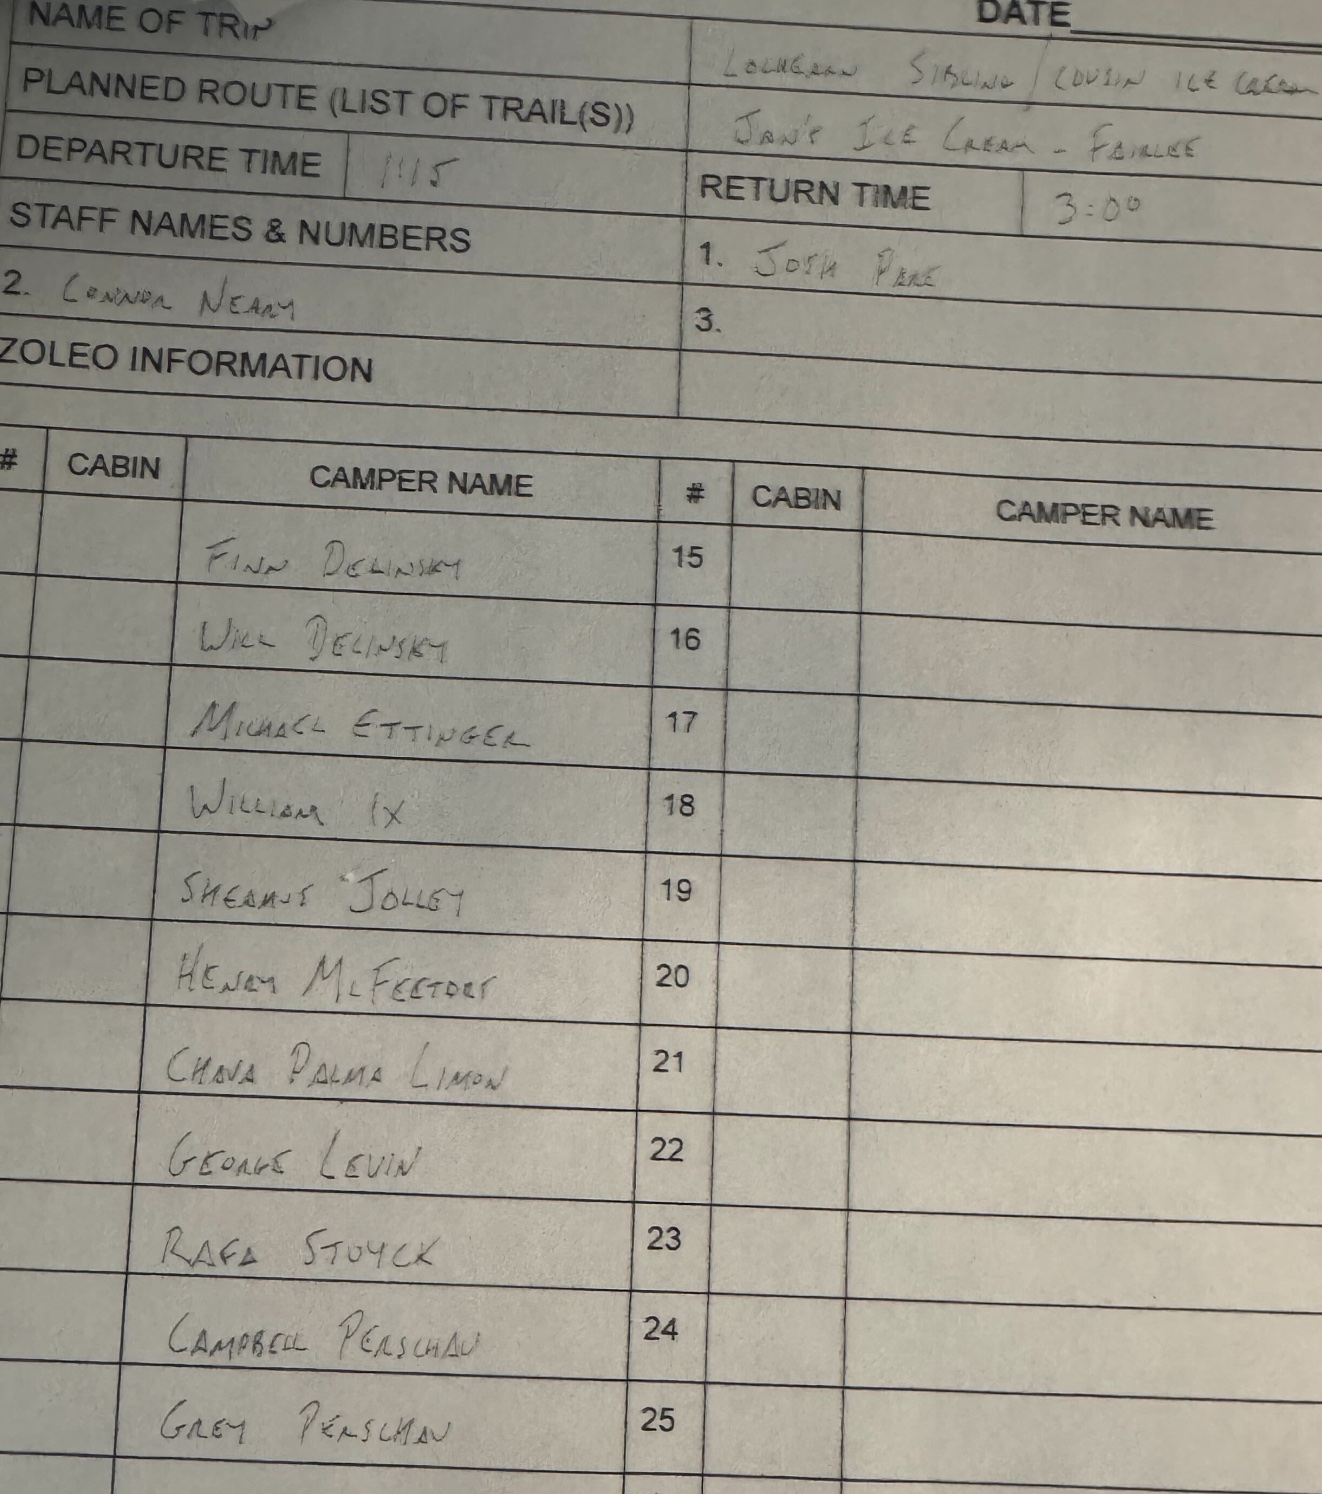 NAME OF TRIP
DATE
LOCHEARN SIBLING / COUSIN ICE CREAM
PLANNED ROUTE (LIST OF TRAIL(S))
JAN'S ICE CREAM - FAIRLEE
DEPARTURE TIME 1:15
RETURN TIME 3:00
STAFF NAMES & NUMBERS
1. JOSH PARE
2. CONNOR NEARY
3.
ZOLEO INFORMATION
# CABIN CAMPER NAME # CABIN CAMPER NAME
FINN DELINSKY 15
WILL DELINSKY 16
MICHAEL ETTINGER 17
WILLIAM IX 18
SHEAMUS JOLLEY 19
HENRY MCFEETORS 20
CHAVA PALMA LIMON 21
GEORGE LEVIN 22
RAFA STUYCK 23
CAMPBELL PERSCHAU 24
GREY PERSCHAU 25